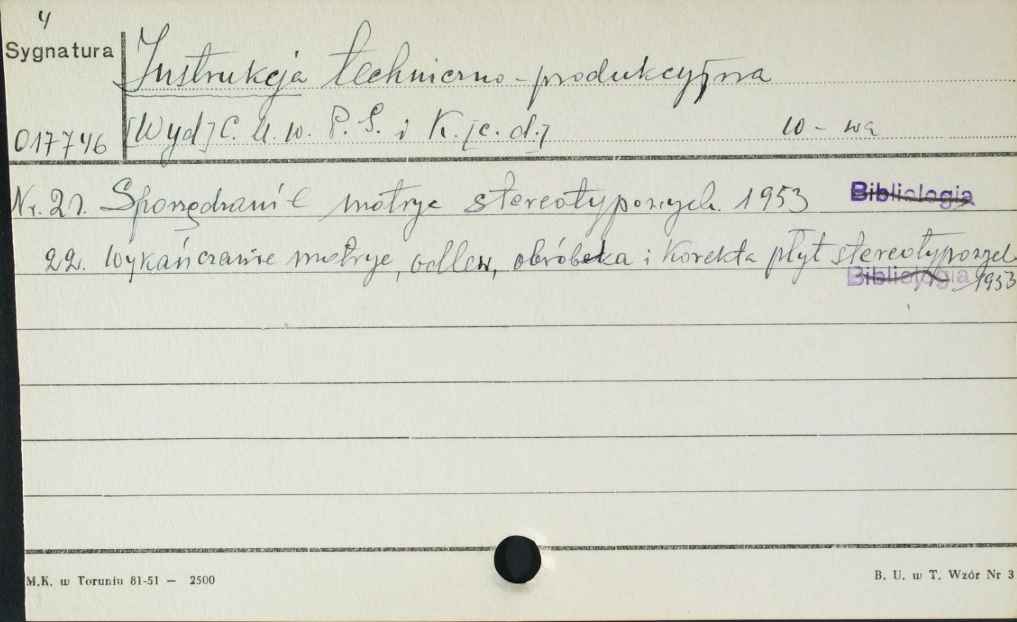 4
Sygnatura
Instrukcja techniczno-produkcyjna
017746 [Wyd] C. U. w. P. G. i K. [c. d.] W-wa
Nr. 21. Sporządzanie matryc stereotypowych. 1953 Bibliologia
22. Wykańczanie matryc, odlew, obróbka i korekta płyt stereotypowych
Bibliologia 1953
M.K. w Toruniu 81-51 — 2500
B. U. w T. Wzór Nr 3